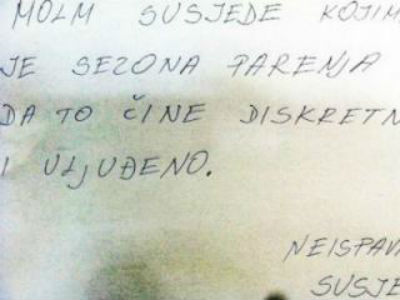 MOLM SUSJEDE KOJIM
JE SEZONA PARENJA
DA TO ČINE DISKRETN
I ULJUĐENO.
NEISPAVA
SUSJE